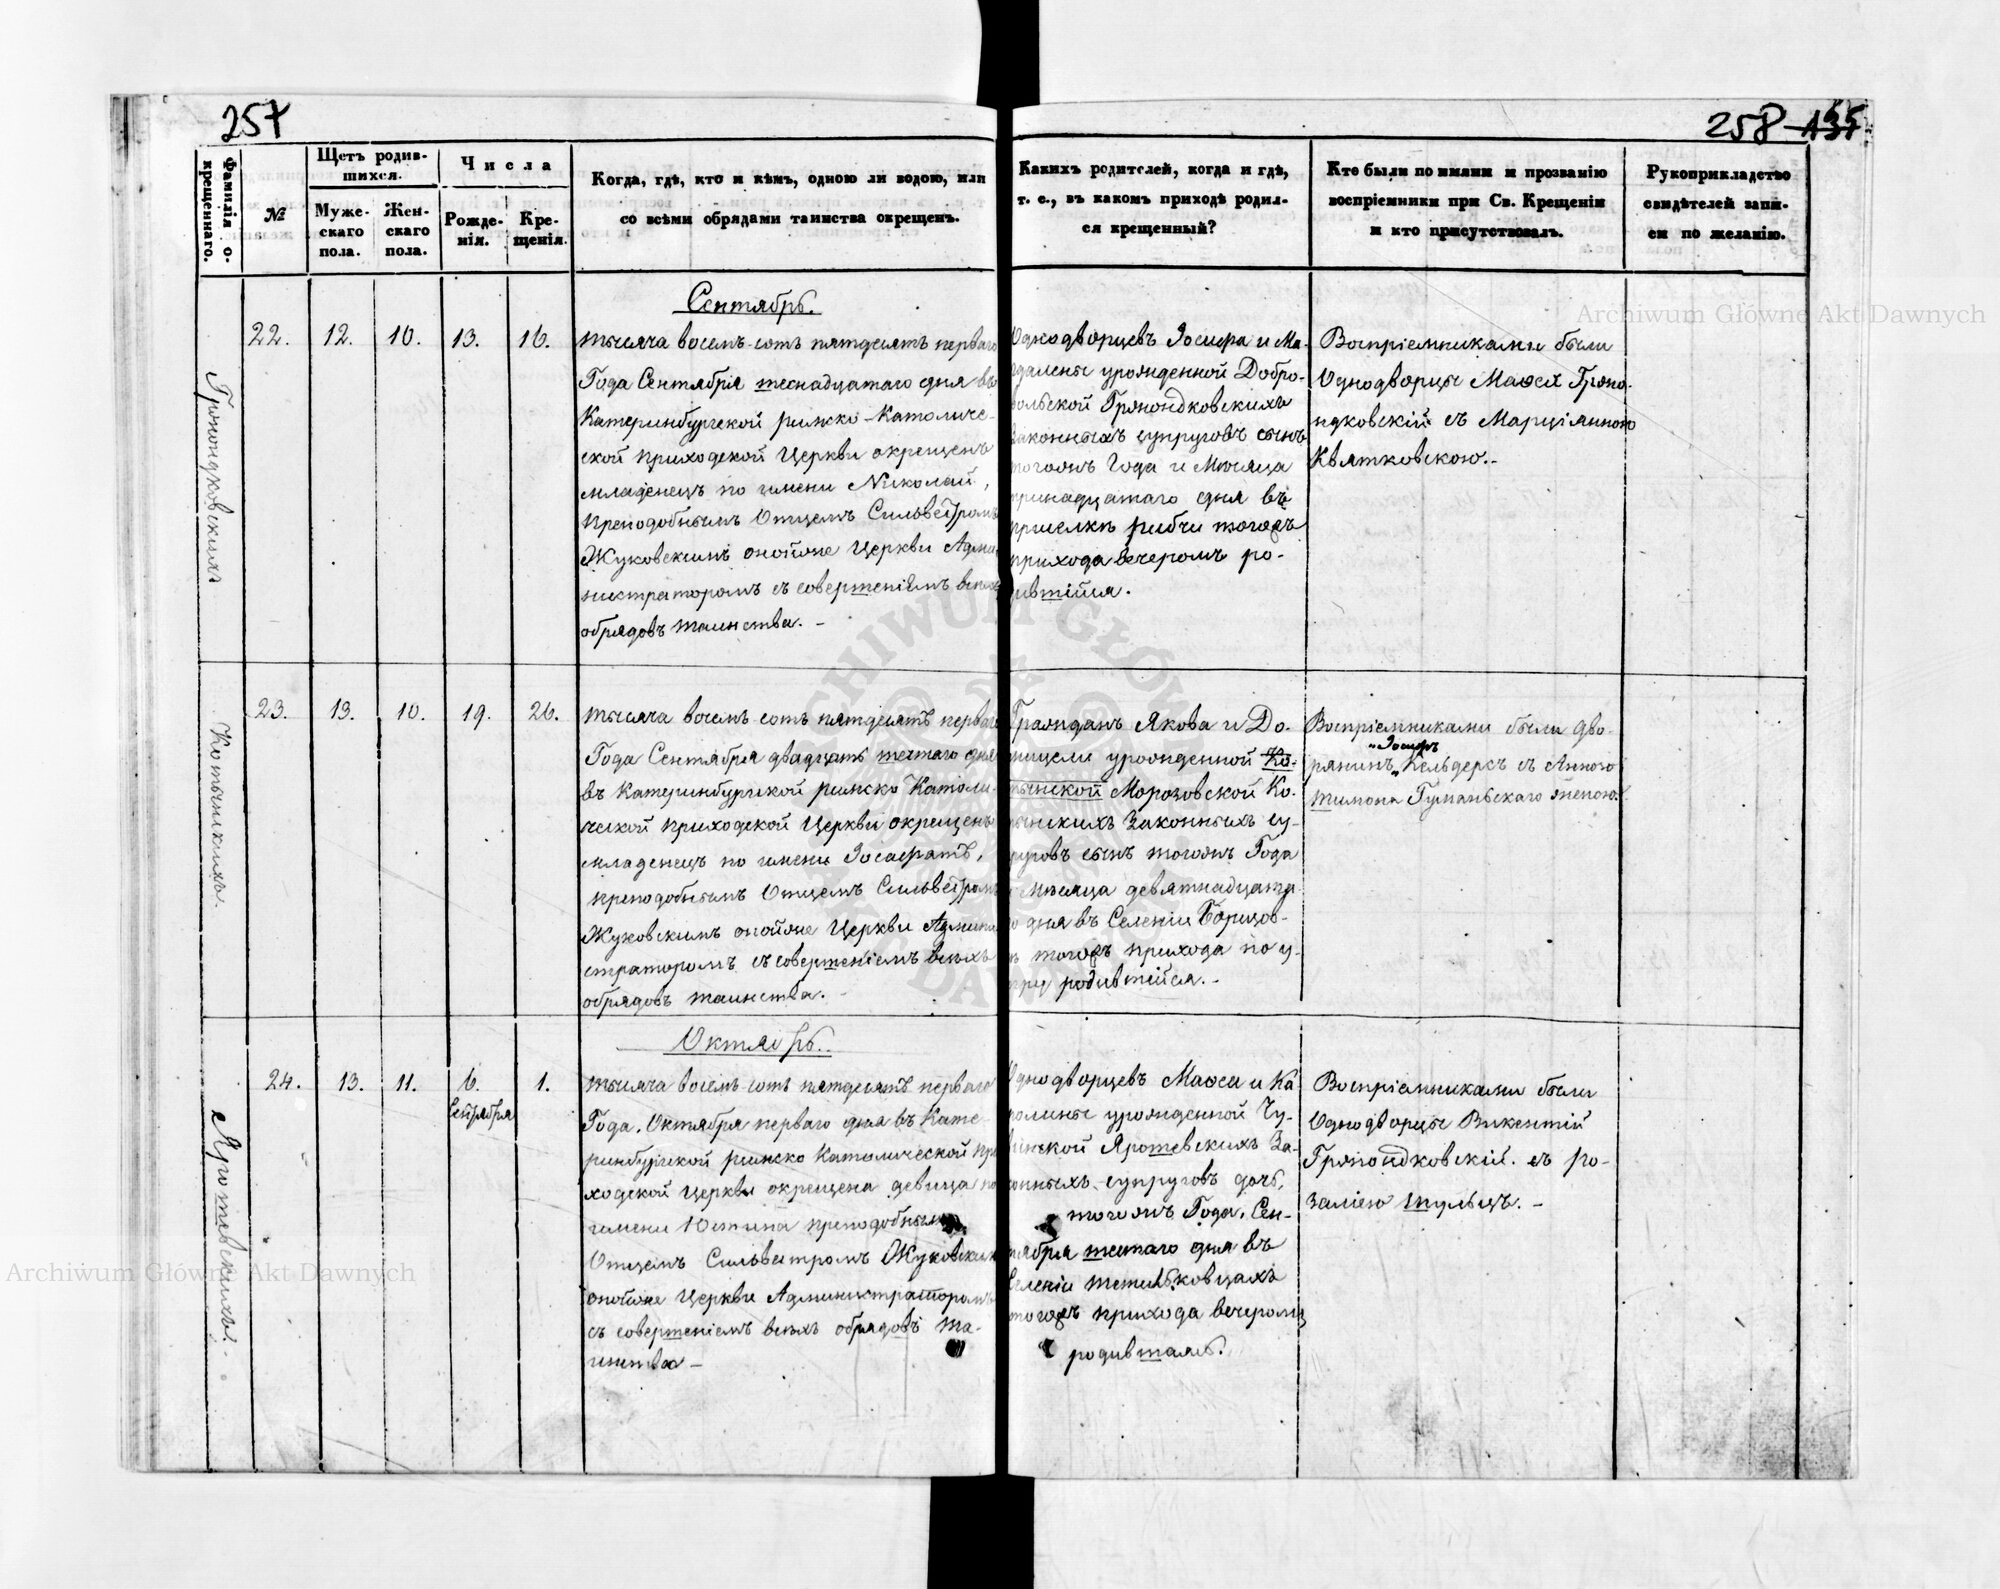 257
258
Фамилія о-
крещеннаго.
№
Щетъ родив-
шихся.
Муже-
скаго
пола.
Жен-
скаго
пола.
Числа
Рожде-
нія.
Кре-
щенія.
Когда, гдѣ, кто и кѣмъ, одною ли водою, или
со всѣми обрядами таинства окрещенъ.
Каких родителей, когда и гдѣ,
т. е., въ какомъ приходѣ родил-
ся крещенный?
Кто были по имяни и прозванію
воспріемники при Св. Крещеніи
и кто присутствовалъ.
Рукоприкладство
свидѣтелей запи-
си по желанію.
Сентябрь.
22.
12.
10.
13.
16.
тысяча восемь-сотъ пятдесятъ перваго
Года Сентябрія шеснадцатаго дня въ
Катеринбургской римско-Католиче-
ской приходской Церкви окрещенъ
младенецъ по имени Николай,
преподобнымъ Отцемъ Сильвестромъ
Жуковскимъ онойже Церкви Адми-
нистраторомъ съ совершеніемъ всѣхъ
обрядовъ таинства. -
Однодворцевъ Іосифа и Ма-
гдалены урожденной Добро-
вольской
законныхъ супруговъ сынъ
тогожъ Года и Мѣсяца
тринадцатаго дня въ
тогожъ
прихода вечеромъ ро-
дившійся.
Воспріемниками были
Однодворцы
съ Марціянною
Квятковскою. -
23.
13.
10.
19.
26.
тысяча восемь-сотъ пятдесятъ перваго
Года Сентября двадцать шестаго дня
въ Катеринбургской римско Католи-
ческой приходской Церкви окрещенъ
младенецъ по имени Іосафатъ,
преподобнымъ Отцемъ Сильвестромъ
Жуковскимъ онойже Церкви Админи-
страторомъ съ совершеніемъ всѣхъ
обрядовъ таинства. -
Гражданъ Якова и До-
урожденной Ко-
тынской Морозовской Ко-
тынскихъ Законныхъ су-
пруговъ сынъ тогожъ Года
и Мѣсяца девятнадцата-
го дня въ Селеніи
тогожъ прихода по у-
тру родившійся. -
Воспріемниками были дво-
Іосифъ
рянинъ Кельдеръ съ Анною
женою.
Октябрь.
24.
13.
11.
6.
Сентября
1.
тысяча восемь-сотъ пятдесятъ перваго
Года. Октября перваго дня въ Кате-
ринбургской римско Католической при-
ходской Церкви окрещена девица по
имени Юстина преподобнымъ
Отцемъ Сильвестромъ Жуковскимъ
онойже Церкви Администраторомъ
съ совершеніемъ всѣхъ обрядовъ та-
инства -
Однодворцевъ и Ка-
ролины урожденной
Ярошевскихъ За-
конныхъ супруговъ дочь,
тогожъ Года. Сен-
тября шестаго дня въ
Селеніи
тогожъ прихода вечеромъ
родившаясь.
Воспріемниками были
Однодворцы Викентій
съ Ро-
заліею Шульцъ. -
Ярошевскихъ.
Archiwum Główne Akt Dawnych
Archiwum Główne Akt Dawnych